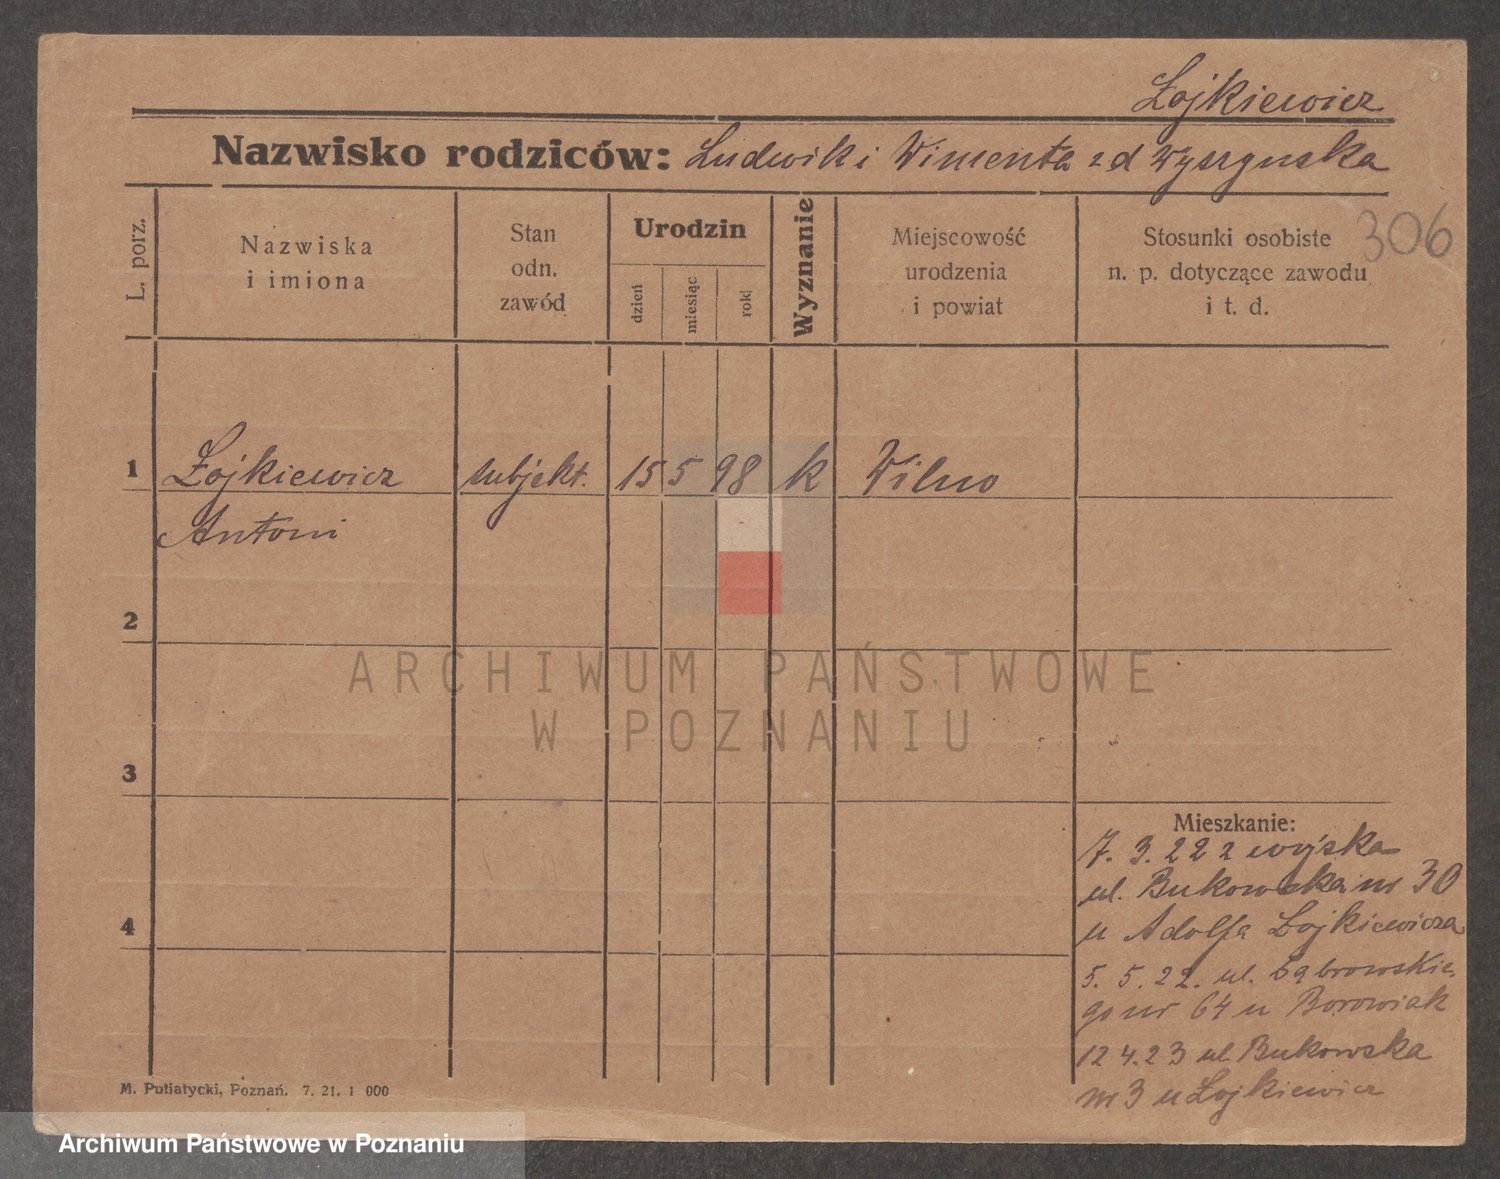 Łojkiewicz
Nazwisko rodziców: Ludwik i Wimenta z d Wyszguska
L. porz.
Nazwiska
i imiona
Stan
odn.
zawód
Urodzin
dzień
miesiąc
rok
Wyznanie
Miejscowość
urodzenia
i powiat
Stosunki osobiste
n. p. dotyczące zawodu
i t. d.
306
1 Łojkiewicz subjekt. 15 5 98 k Wilno
Antoni
2
ARCHIWUM PAŃSTWOWE
W POZNANIU
3
Mieszkanie:
7. 3. 22 z wojska
ul. Bukowska nr 30
u Adolfa Łojkiewicza
5. 5. 22. ul. Dąbrowskie
go nr 64 u Borowiak
12 4. 23 ul. Bukowska
nr 3 u Łojkiewicz
4
M. Putiatycki, Poznań. 7. 21. 1 000
Archiwum Państwowe w Poznaniu